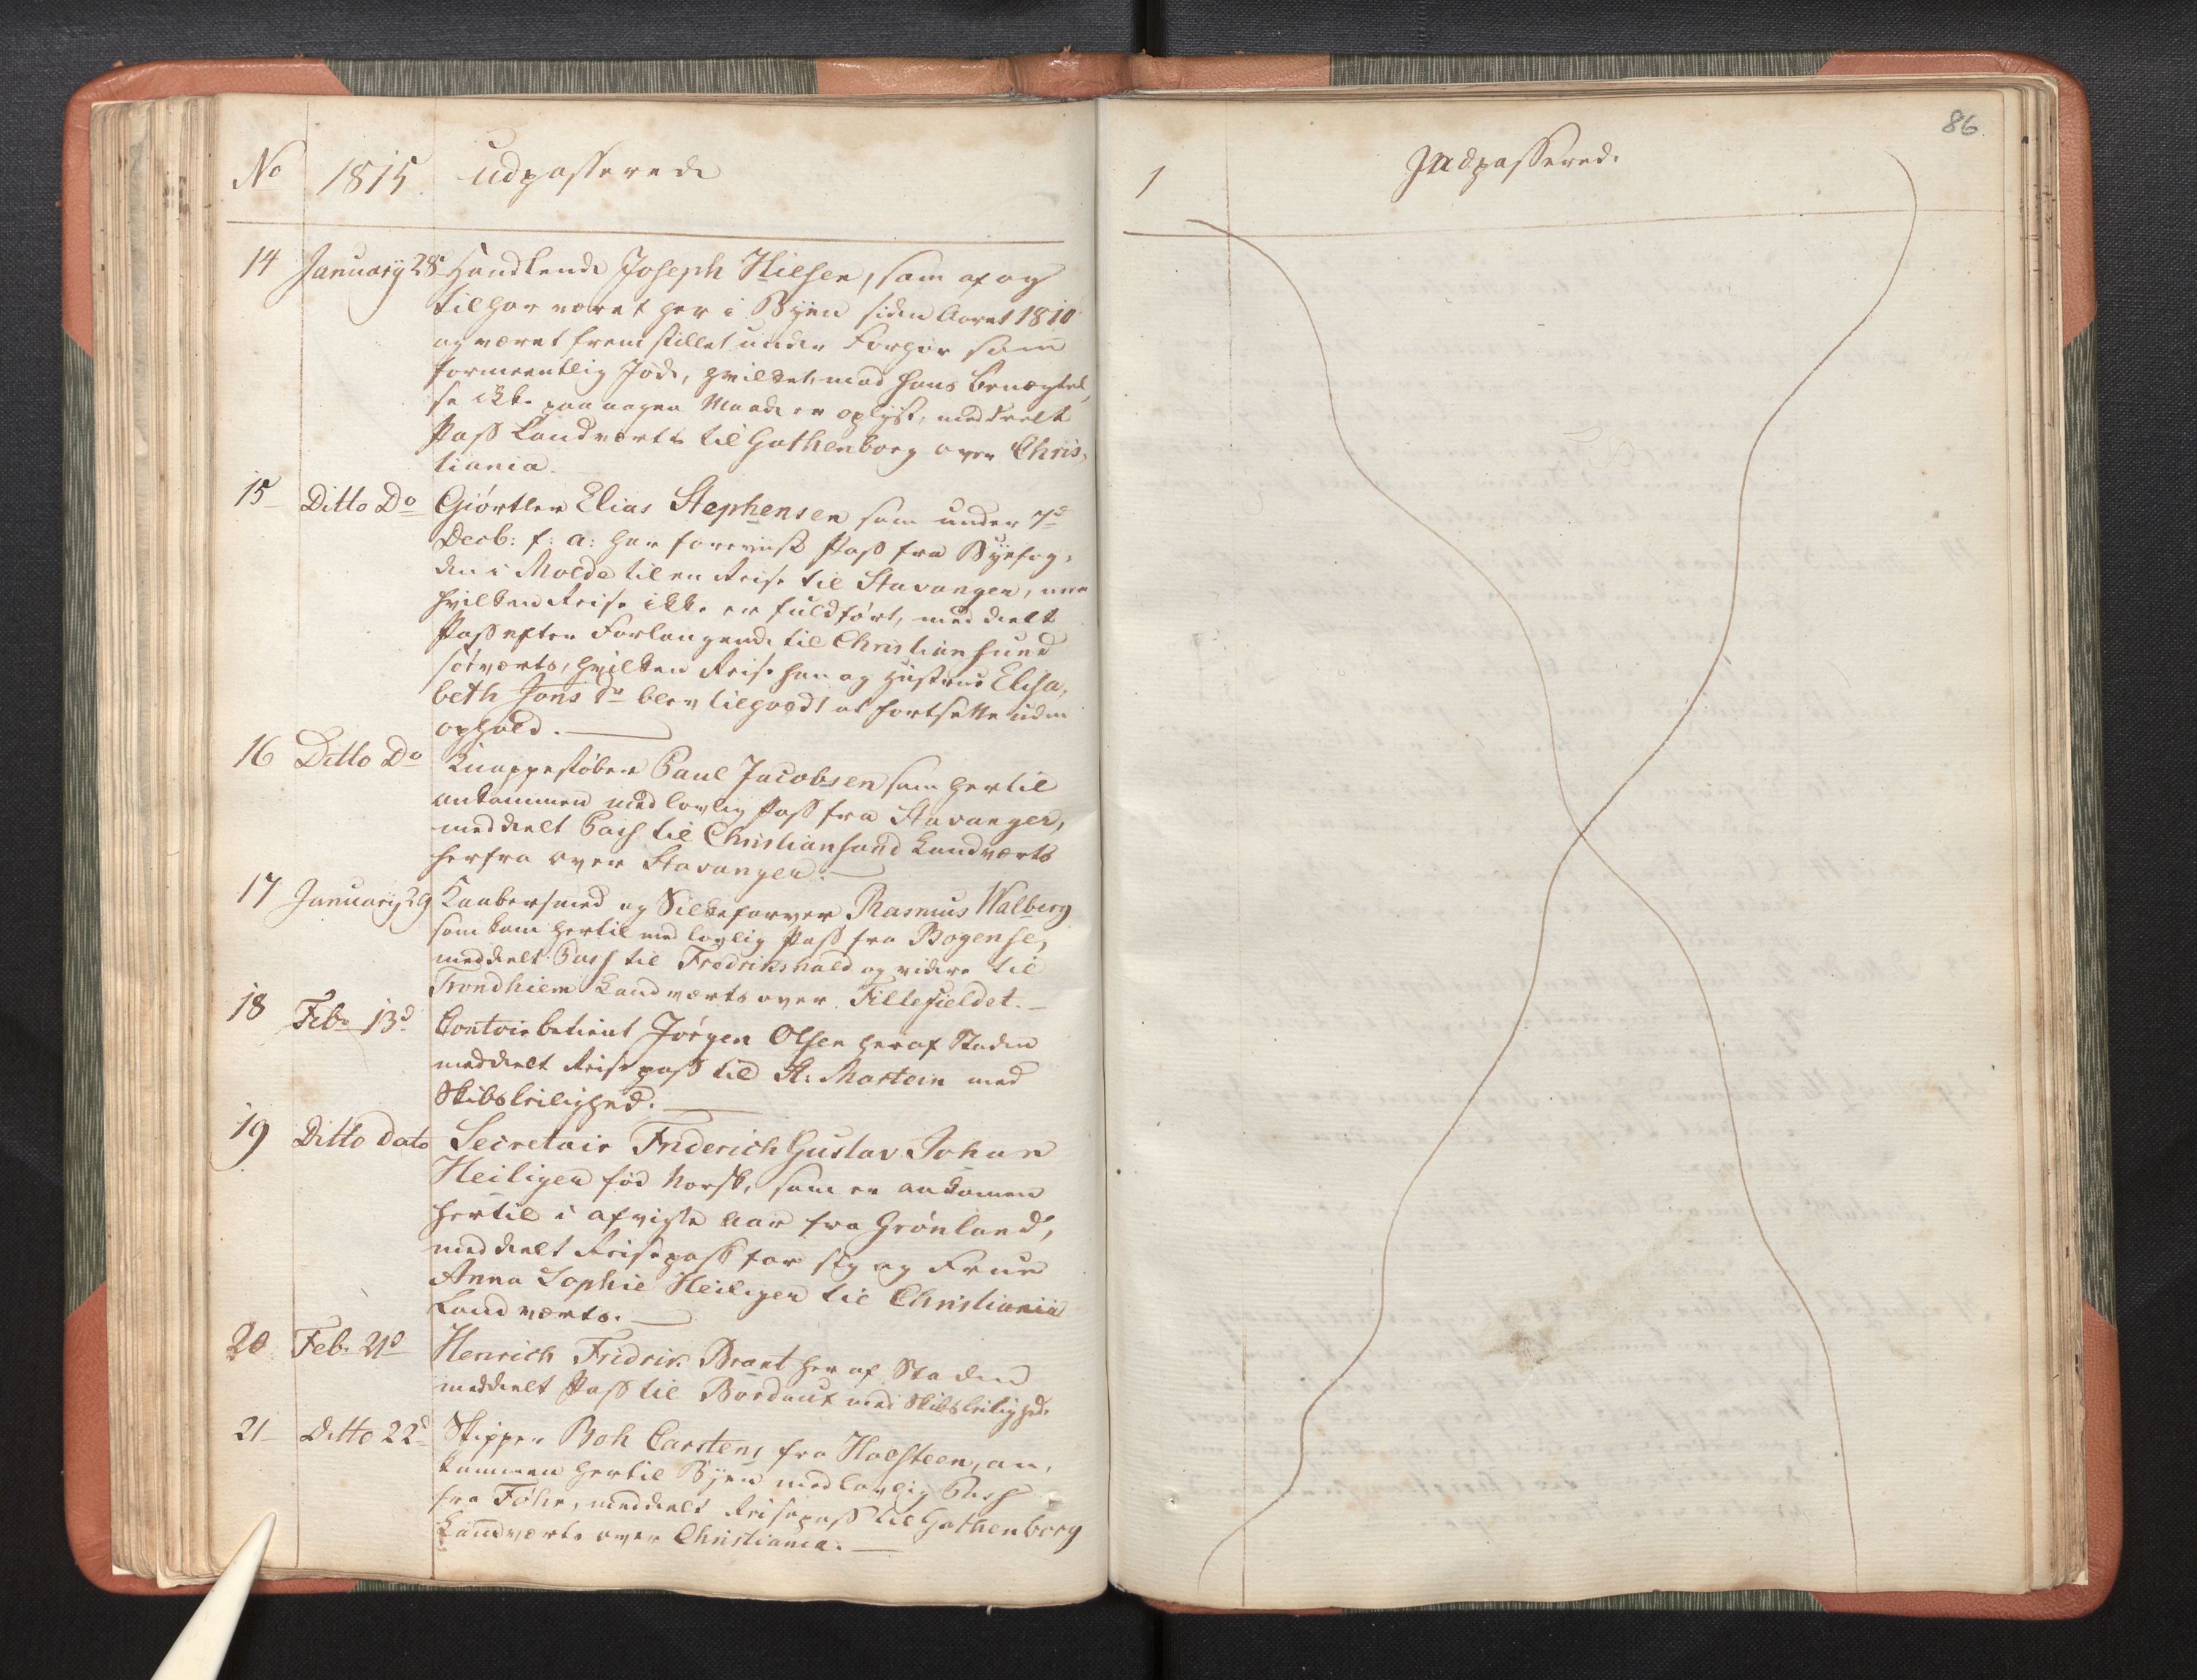 No 1815. udpasserede
14 January 28de Handlende Joseph Nielsen, som af og
til har været her i Byen siden Aaret 1810
og været fremstillet under Forhør som
formeentlig Jøde, hvilket, mod hans Benægtel,
se ikke paa nogen Maade er oplyst, meddeelt
Pass Landværts til Gothenborg over Chris,
tiania.
15 Ditto Do Giørtler Elias Stephensen som under 7de
Decb: f: a: har foreviist Pass fra Byefog,
den i Molde til en Reise til Stavanger, men
hvilken Reise ikke er fuldført, meddeelt
Pass efter Forlangende til Christiansund
søeværts, hvilken Reise han og Hustrue Elisa,
beth Jons dr blev tilholdt at fortsette uden
ophold.
16 Ditto Do Knappestøber Paul Jacobsen som hertil
ankommen med lovlig Pass fra Stavanger,
meddeelt Pass til Christiansand Landværts
herfra over Stavanger.
17 January 29 Kaabersmed og Silkefarver Rasmus Walberg
som kom hertil med lovlig Pass fra Bogense,
meddeelt Pass til Fredrikshald og videre til
Trondhiem Landværts over Fillefieldet.
18 Febr 13d Contoirbetient Jørgen Olsen her af Staden
meddeelt Reisepass til St: Martein med
Skibsleilighed.
19 Ditto dato Secretair Friderich Gustav Johan
Heiliger fød Norsk, som er ankomen
hertil i afvigte Aar fra Grønland,
meddeelt Reisepass for sig og Frue
Anna Sophie Heiliger til Christiania
Landværts.
20 Feb. 21d Henrich Fridrik Brant her af Staden
meddeelt Pass til Bordaux med Skibsleilighed.
21 Ditto 22d Skipper Boh Carstens fra Holsteen, an,
kommen hertil Byen med lovlig Pass
fra Føhr, meddeelt Reisepass til Gothenborg
Landværts over Christiania.
1 Indpasserede
86.